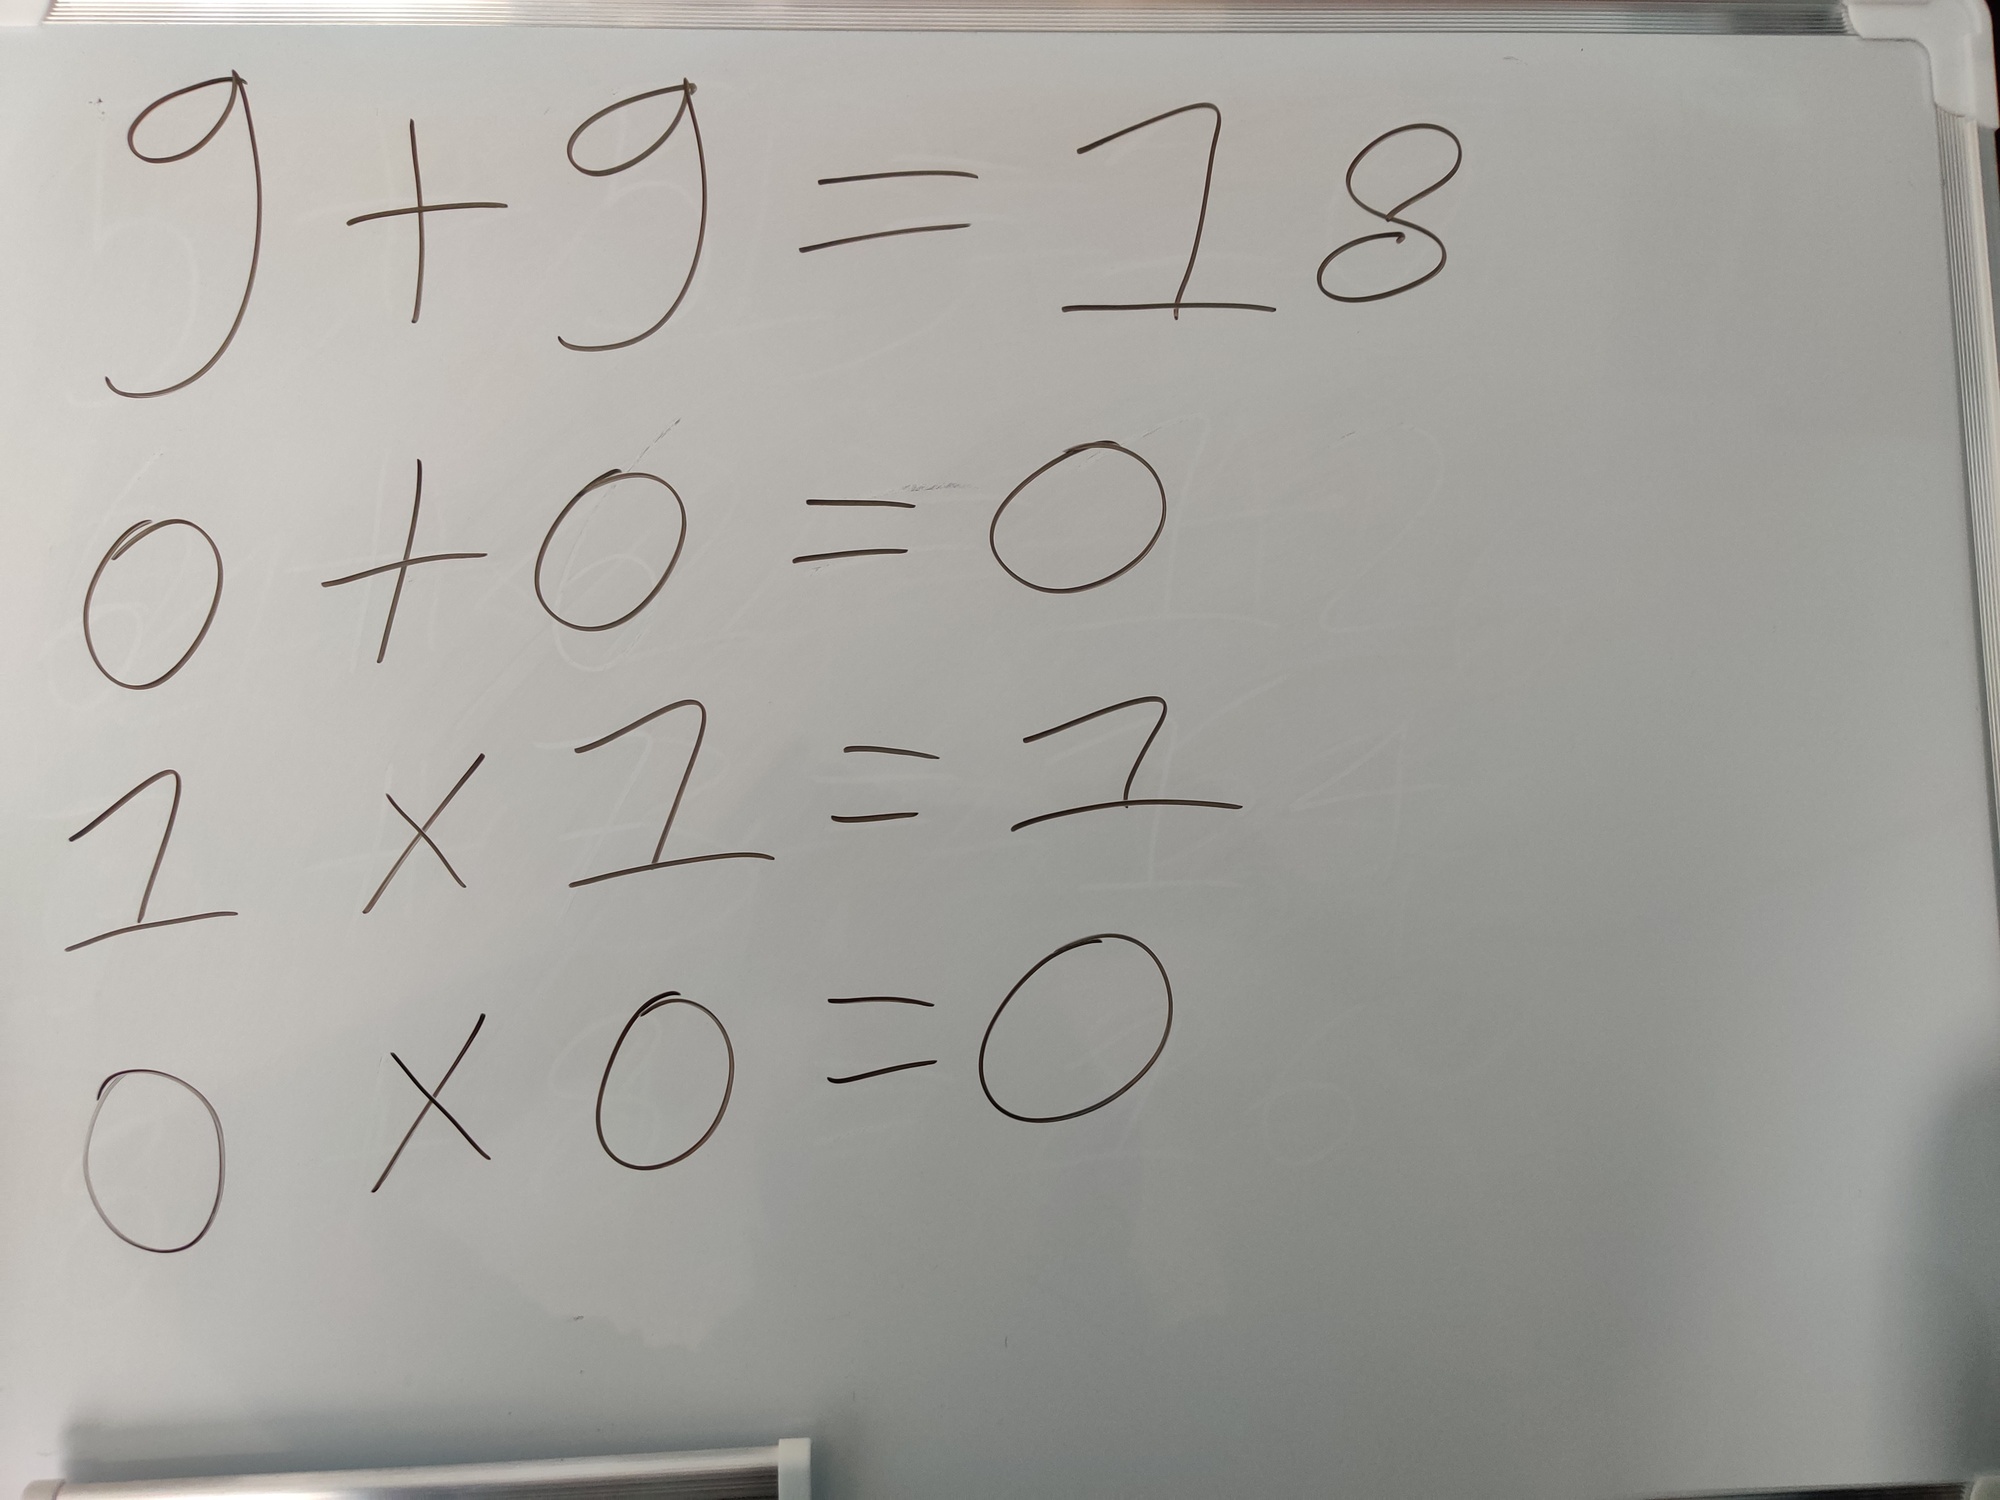 9 + 9 = 18
0 + 0 = 0
1 × 1 = 1
0 × 0 = 0